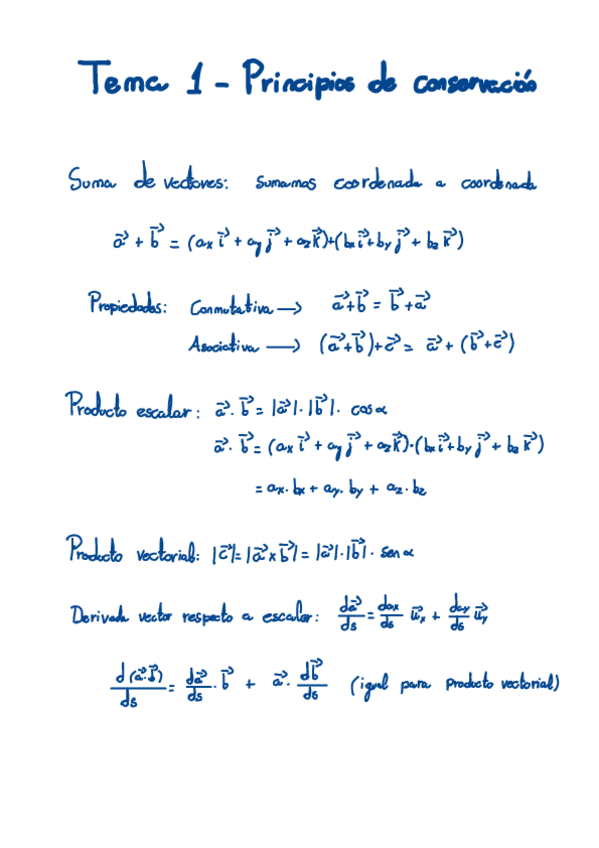 Tema 1 - Principios de conservación
Suma de vectores: sumamos coordenada a coordenada
a⃗ + b⃗ = (ax i⃗ + ay j⃗ + az k⃗)+(bx i⃗+by j⃗ + bz k⃗)
Propiedades: Conmutativa → a⃗+b⃗ = b⃗+a⃗
Asociativa → (a⃗+b⃗)+c⃗ = a⃗ + (b⃗+c⃗)
Producto escalar: a⃗ · b⃗ = |a⃗|·|b⃗|· cos α
a⃗ · b⃗ = (ax i⃗ + ay j⃗ + az k⃗)·(bx i⃗+by j⃗ + bz k⃗)
= ax·bx + ay·by + az·bz
Producto vectorial: |c⃗|=|a⃗ x b⃗| = |a⃗|·|b⃗|· sen α
Derivada vector respecto a escalar: da⃗/ds = dax/ds u⃗x + day/ds u⃗y
d(a⃗·b⃗)/ds = da⃗/ds · b⃗ + a⃗ · db⃗/ds (igual para producto vectorial)